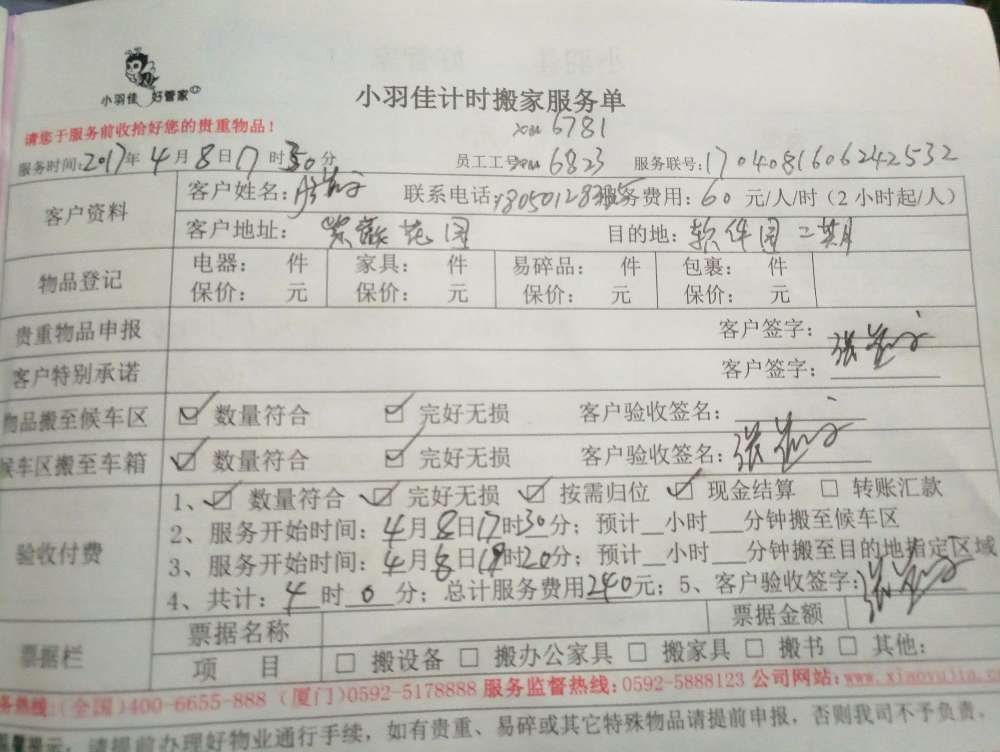 小羽佳 好管家
小羽佳计时搬家服务单
请您于服务前收拾好您的贵重物品!
xm 6781
服务时间:2017年4月8日17时30分 员工工号:xm 6823 服务联号:1704081606242532
客户资料 客户姓名: 联系电话: 服务费用:60元/人/时(2小时起/人)
客户地址:紫薇花园 目的地:软件园二期
物品登记 电器: 件 家具: 件 易碎品: 件 包裹: 件
保价: 元 保价: 元 保价: 元 保价: 元
贵重物品申报 客户签字:
客户特别承诺 客户签字:
物品搬至候车区 数量符合 完好无损 客户验收签名:
候车区搬至车箱 数量符合 完好无损 客户验收签名:
验收付费 1、数量符合 完好无损 按需归位 现金结算 转账汇款
2、服务开始时间:4月8日17时30分;预计__小时___分钟搬至候车区
3、服务开始时间:4月8日19时20分;预计__小时___分钟搬至目的地指定区域
4、共计:4时0分;总计服务费用240元;5、客户验收签字:
票据栏 票据名称 票据金额
项 目 搬设备 搬办公家具 搬家具 搬书 其他:
务热线:(全国)400-6655-888 (厦门)0592-5178888 服务监督热线:0592-5888123 公司网站:www.xiaoyujia.c
提示:请提前办理好物业通行手续,如有贵重、易碎或其它特殊物品请提前申报,否则我司不予负责。